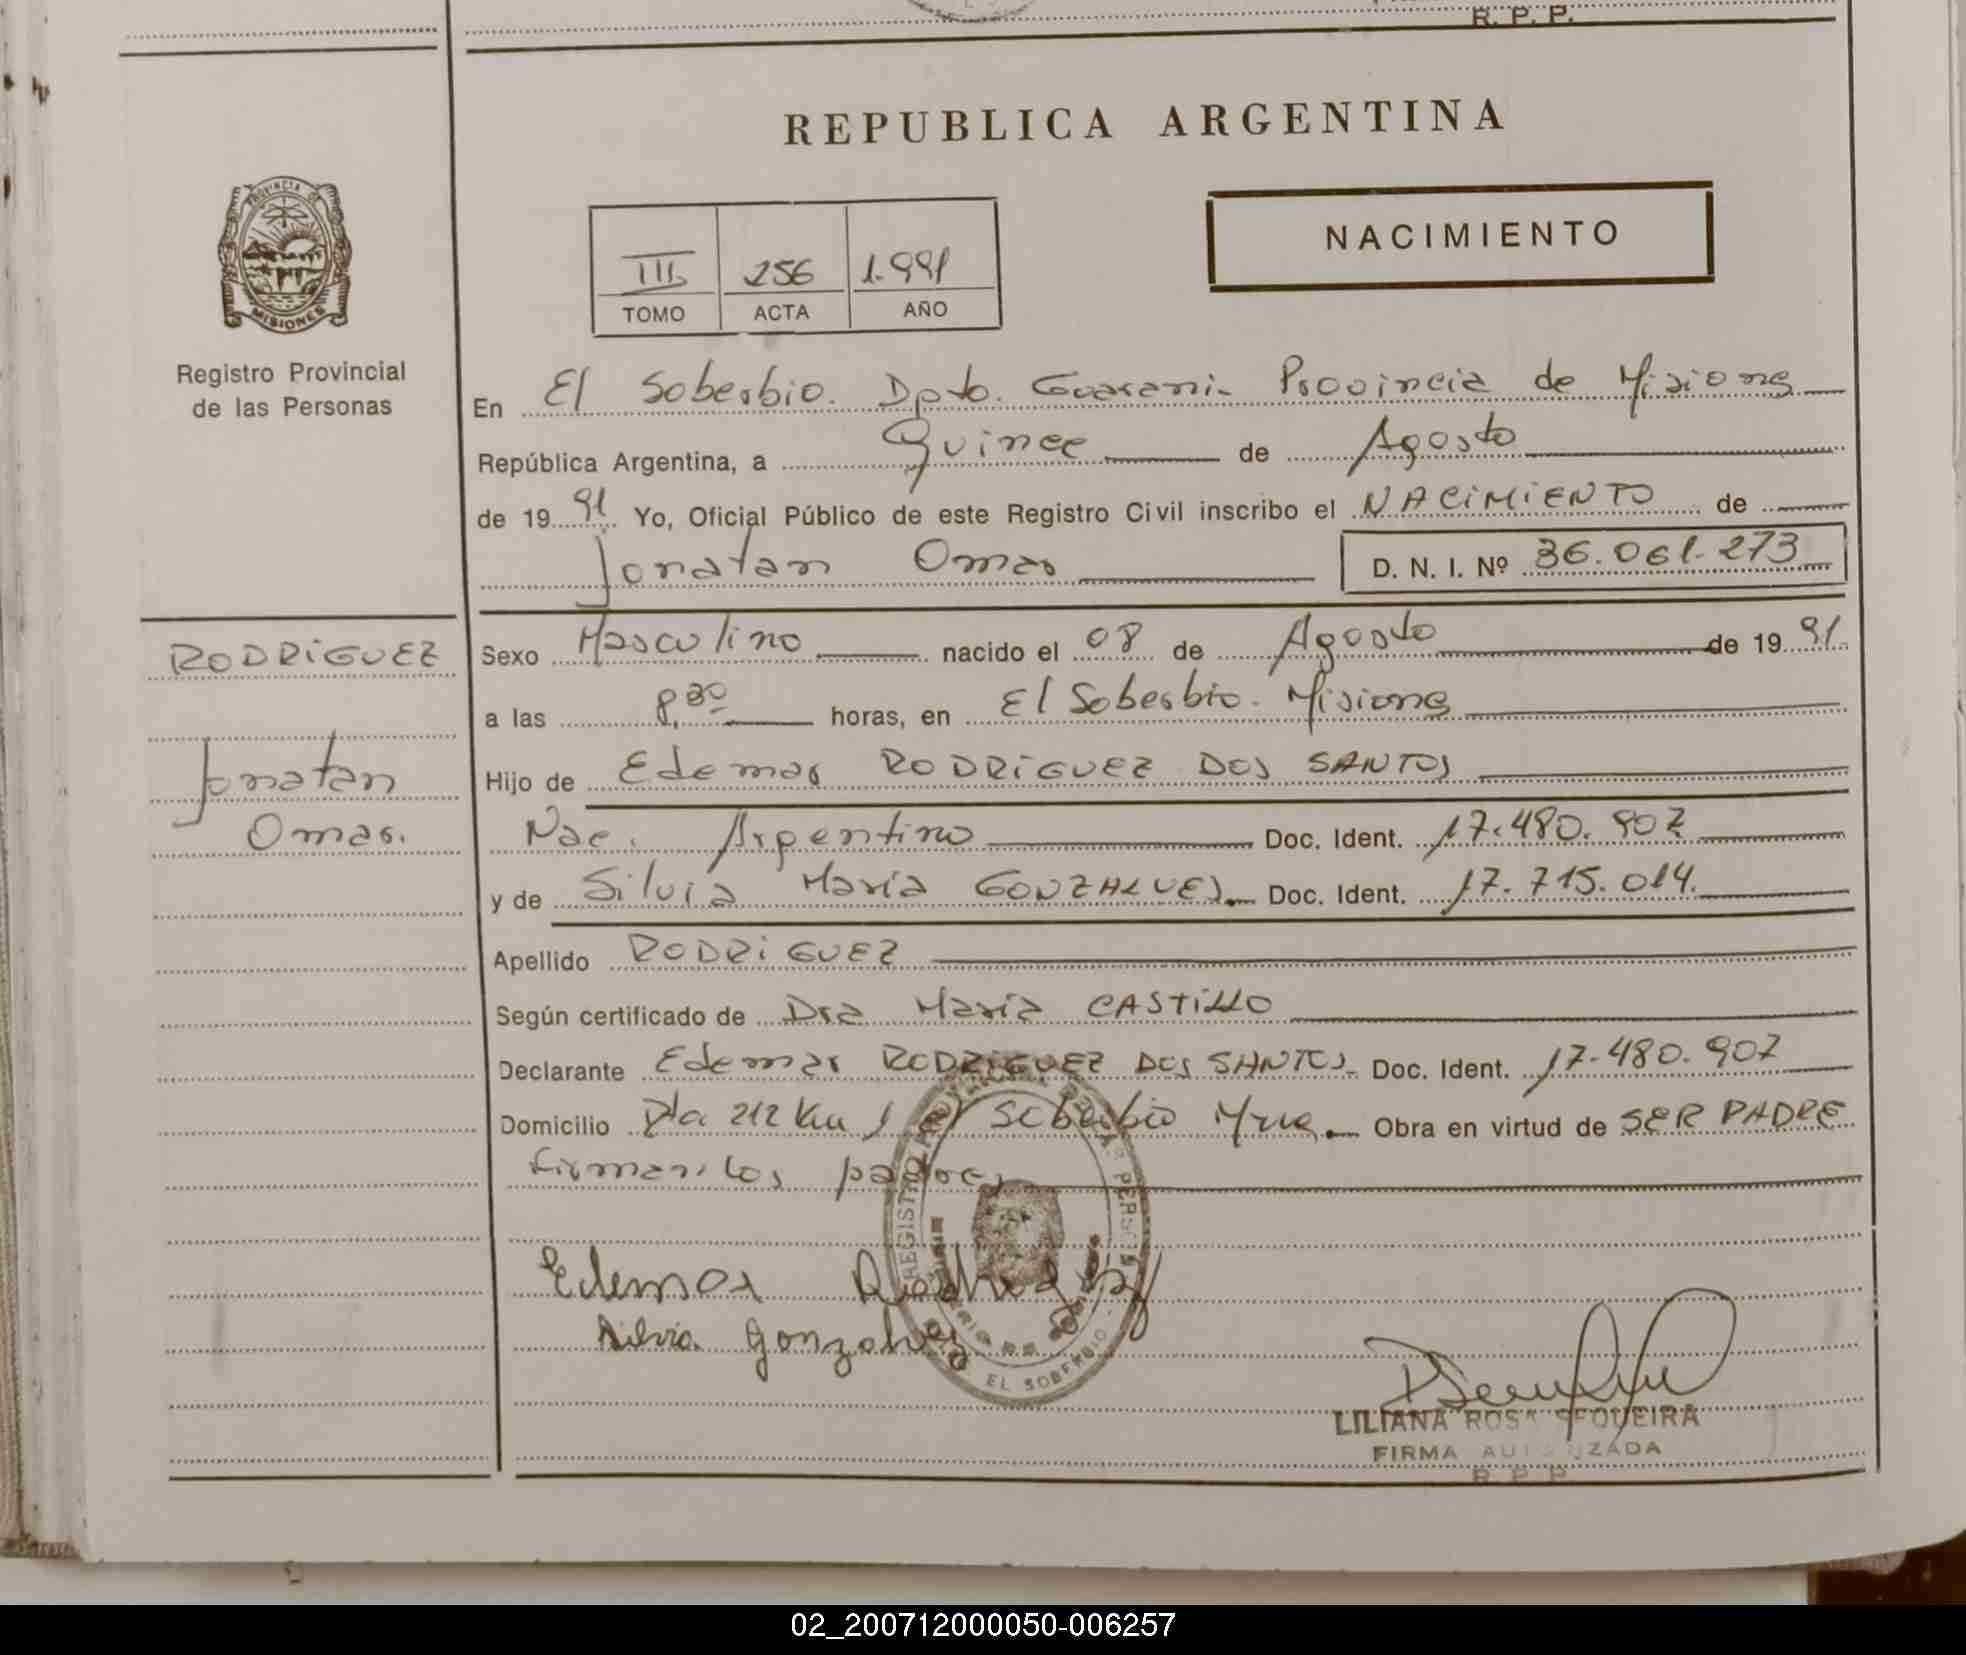 R. P. P.
REPUBLICA ARGENTINA
PROVINCIA DE
MISIONES
Registro Provincial
de las Personas
NACIMIENTO
III 256 1.991
TOMO ACTA AÑO
En El Soberbio. Dpto. Guarani- Provincia de Misiones
República Argentina, a Quince de Agosto
de 19 91 Yo, Oficial Público de este Registro Civil inscribo el NACIMIENTO de
Jonatan Omar D. N. I. Nº 36.061.273
RODRIGUEZ
Jonatan
Omar.
Sexo Masculino nacido el 08 de Agosto de 19 91.
a las 8,30 horas, en El Soberbio. Misiones
Hijo de Edemar RODRIGUEZ DOS SANTOS
Nac. Argentino Doc. Ident. 17.480.907
y de Silvia María GONZALVES Doc. Ident. 17.715.014.
Apellido RODRIGUEZ
Según certificado de Dra María CASTILLO
Declarante Edemar RODRIGUEZ DOS SANTOS Doc. Ident. 17.480.907
Domicilio Rta 212 Km 1 El Soberbio Mnes. Obra en virtud de SER PADRE
Firman los padres
Edemar Rodriguez
Silvia Gonzalvez
REGISTRO PROVINCIAL DE LAS PERSONAS
EL SOBERBIO
LILIANA ROSA SEQUEIRA
FIRMA AUTORIZADA
R. P. P.
02_200712000050-006257